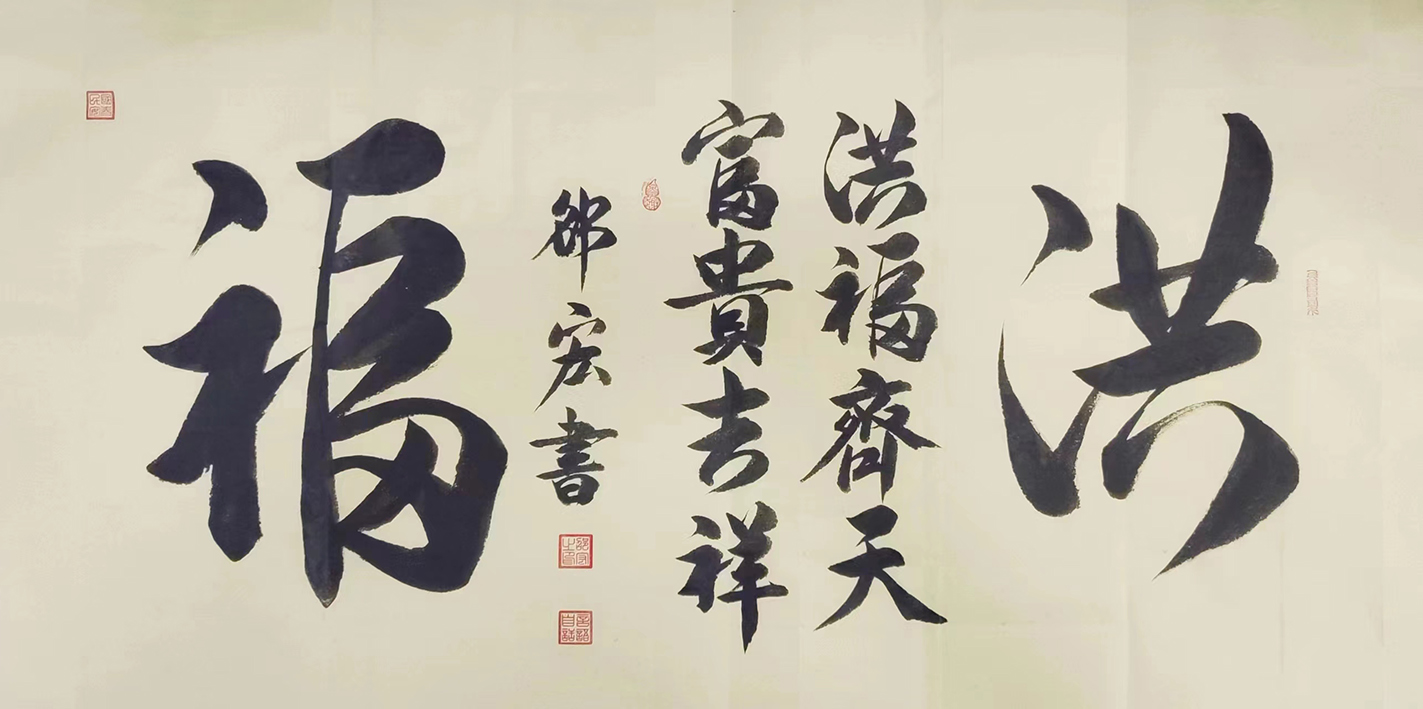 洪
洪福齊天
富貴吉祥
邵宏書
福